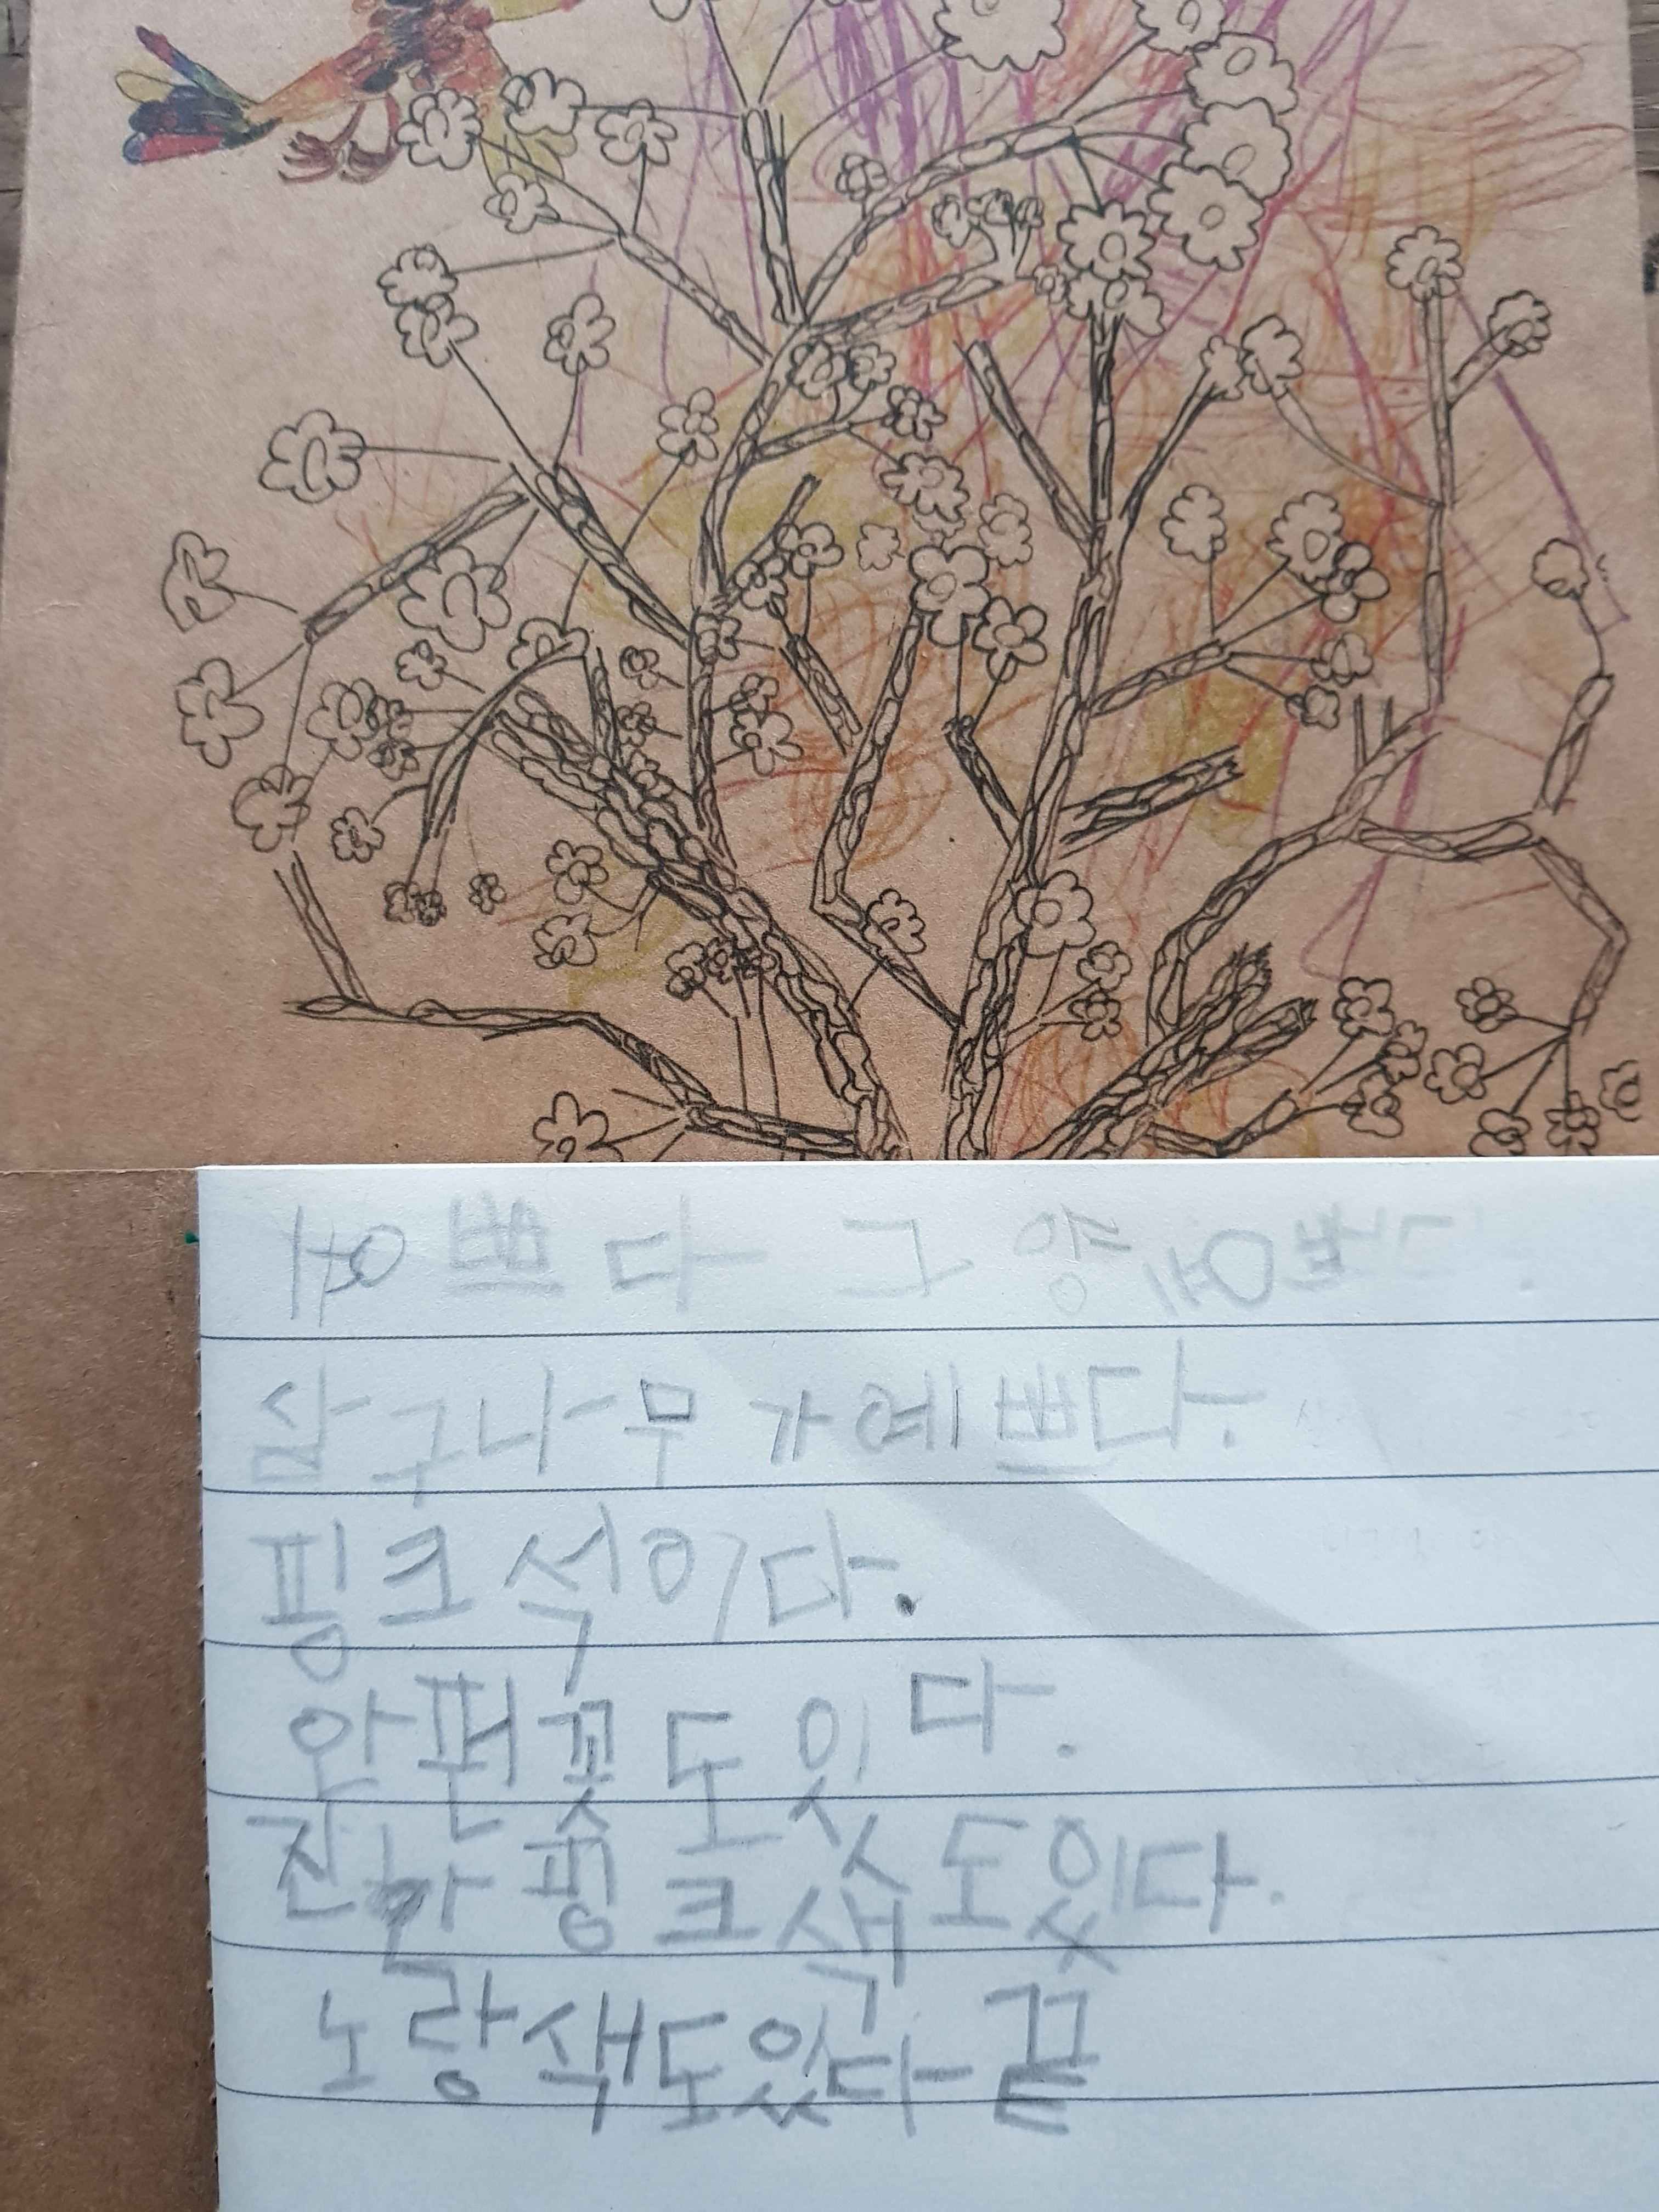 예쁘다 그냥 예쁘다.
살구나무가 예쁘다.
핑크섹이다.
안 펀 꽃도 있다.
진한 핑크색도 있다.
노랑색도 있다 끝